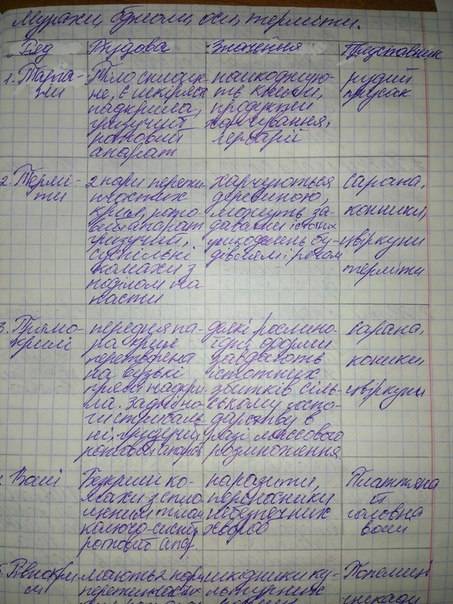 Мурахи, бджоли, оси, терміти.
Вид Будова Значення Представник
1. Тарга-
ни
Тіло сплющ
не, є шкірясті
надкрила,
гризучий
ротовий
апарат
пошкоджую-
ть книги,
продукти
харчування,
гербарії
рудий
прусак
2. Термі-
ти
2 пари перети-
нчастих
крил, рото
вий апарат
гризучий,
суспільні
комахи з
поділом на
касти
харчуються
деревиною,
можуть за-
вдавати істотних
ушкоджень бу-
дівлям і речам
сарана,
коники,
цвіркуни
терміти
3. Прямо-
крилі
передня па-
ра крил
перетворена
на вузькі
прямі надкри-
ла. Задні но-
ги стрибаль-
ні, гризучий
ротовий апарат
деякі рослино-
їдні форми
завдають
істотних
збитків сіль-
ському госпо-
дарству в
разі массового
розмноження
сарана,
коники
цвіркуни
Воші
Безкрилі ко-
махи з спло
щеним тілом
колючо-сисний
ротовий апар.
паразити,
переносники
небезпечних
хвороб
Платтяна
та
головна
воші
5. Рівнокри
лі
мають 2 пари
перетинчастих
шкідники ку-
льтурних
Попелиці